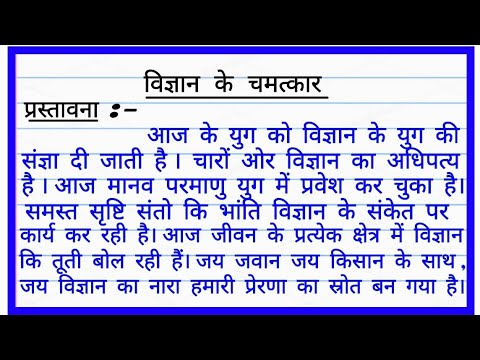 विज्ञान के चमत्कार
प्रस्तावना :-
आज के युग को विज्ञान के युग की
संज्ञा दी जाती है। चारों ओर विज्ञान का अधिपत्य
है। आज मानव परमाणु युग में प्रवेश कर चुका है।
समस्त सृष्टि संतो कि भांति विज्ञान के संकेत पर
कार्य कर रही है। आज जीवन के प्रत्येक क्षेत्र में विज्ञान
कि तूती बोल रही हैं। जय जवान जय किसान के साथ,
जय विज्ञान का नारा हमारी प्रेरणा का स्रोत बन गया है।